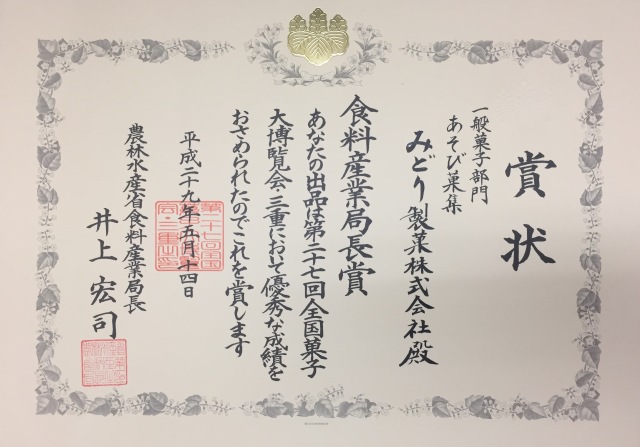 賞状
一般菓子部門
あそび菓集
みどり製菓株式会社殿
食料産業局長賞
あなたの出品は第二十七回全国菓子
大博覧会・三重において優秀な成績を
おさめられたのでこれを賞します
平成二十九年五月十四日
農林水産省食料産業局長
井上宏司